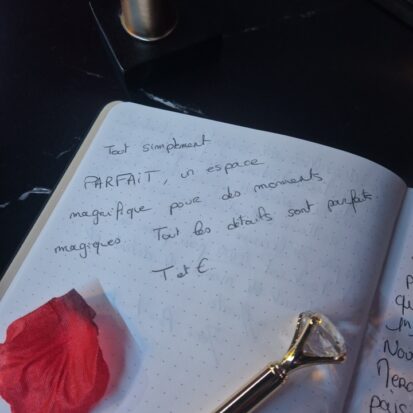 Tout simplement
PARFAIT, un espace
magnifique pour des moments
magiques. Tout les détails sont parfaits
T et E.
qu
Nou
Merc